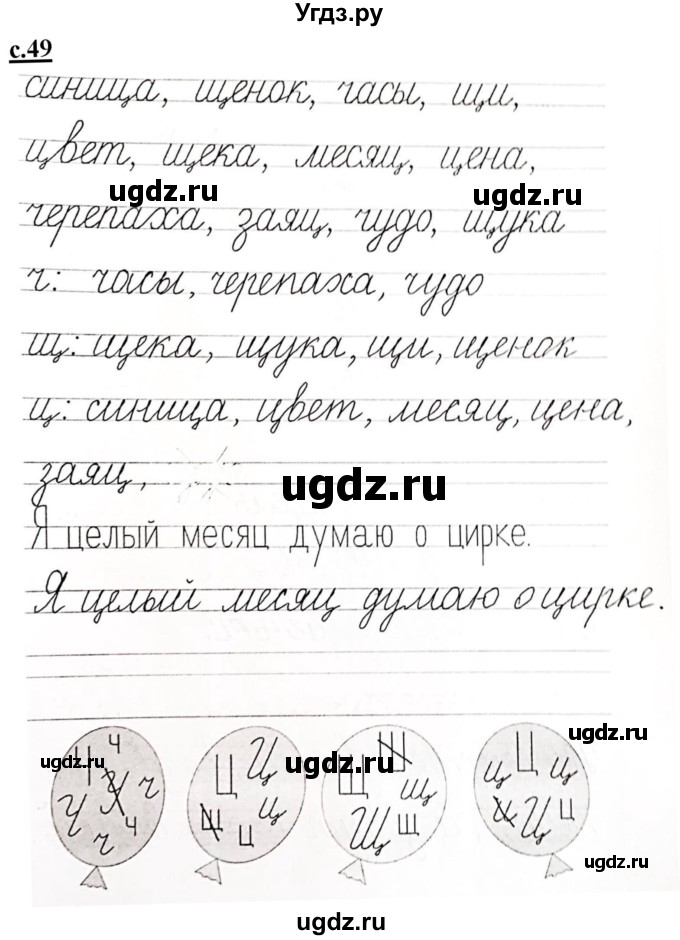 Угдз.ру
с.49
синица, щенок, часы, щи,
цвет, щека, месяц, цена,
ugdz.ru ugdz.ru
черепаха, заяц, чудо, щука
ч: часы, черепаха, чудо
щ: щека, щука, щи, щенок
ц: синица, цвет, месяц, цена,
заяц,
ugdz.ru
Я целый месяц думаю о цирке.
Я целый месяц думаю о цирке.
ugdz.ru
ugdz.ru ugdz.ru
Ч ч У ч Ч ч ч
Ц Ц Щ ц ц
Щ Щ щ Щ щ
ц Ц ц и Ц ц
ugdz.ru
ugdz.ru